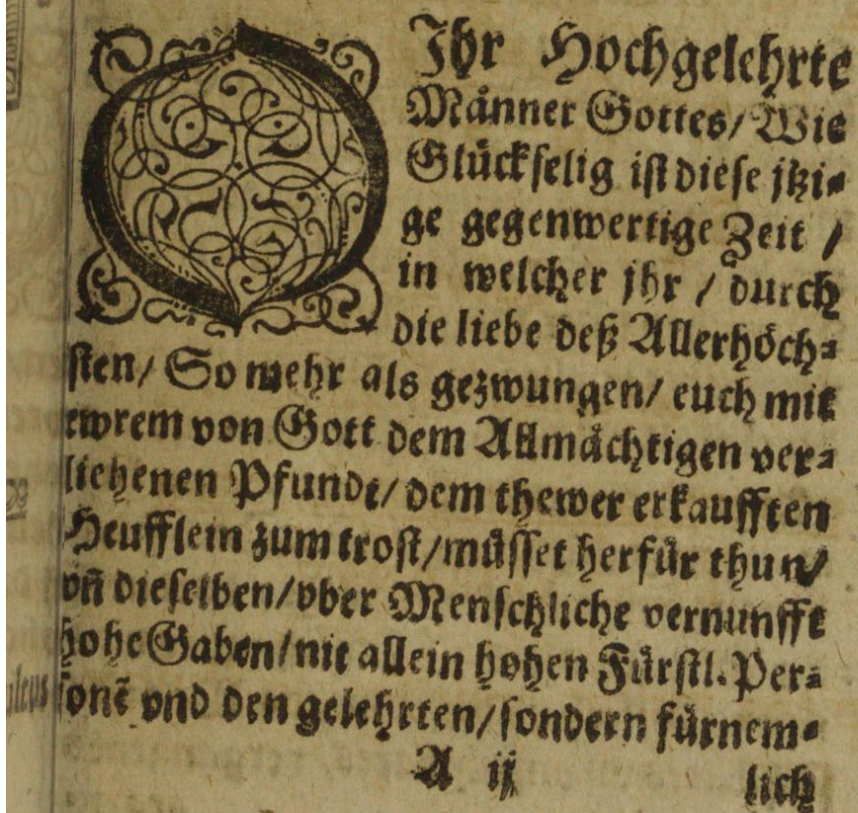 O Ihr Hochgelehrte
Männer Gottes/ Wie
Glückselig ist diese jtzi-
ge gegenwertige Zeit /
in welcher jhr / durch
die liebe deß Allerhöch-
sten/ So mehr als gezwungen/ euch mit
ewrem von Gott dem Allmächtigen ver-
liehenen Pfundt/ dem thewer erkaufften
Heufflein zum trost/ müsset herfür thun/
vñ dieselben/ vber Menschliche vernunfft
hohe Gaben/ nit allein hohen Fürstl. Per-
sonē vnd den gelehrten/ sondern fürnem-
A ij
lich